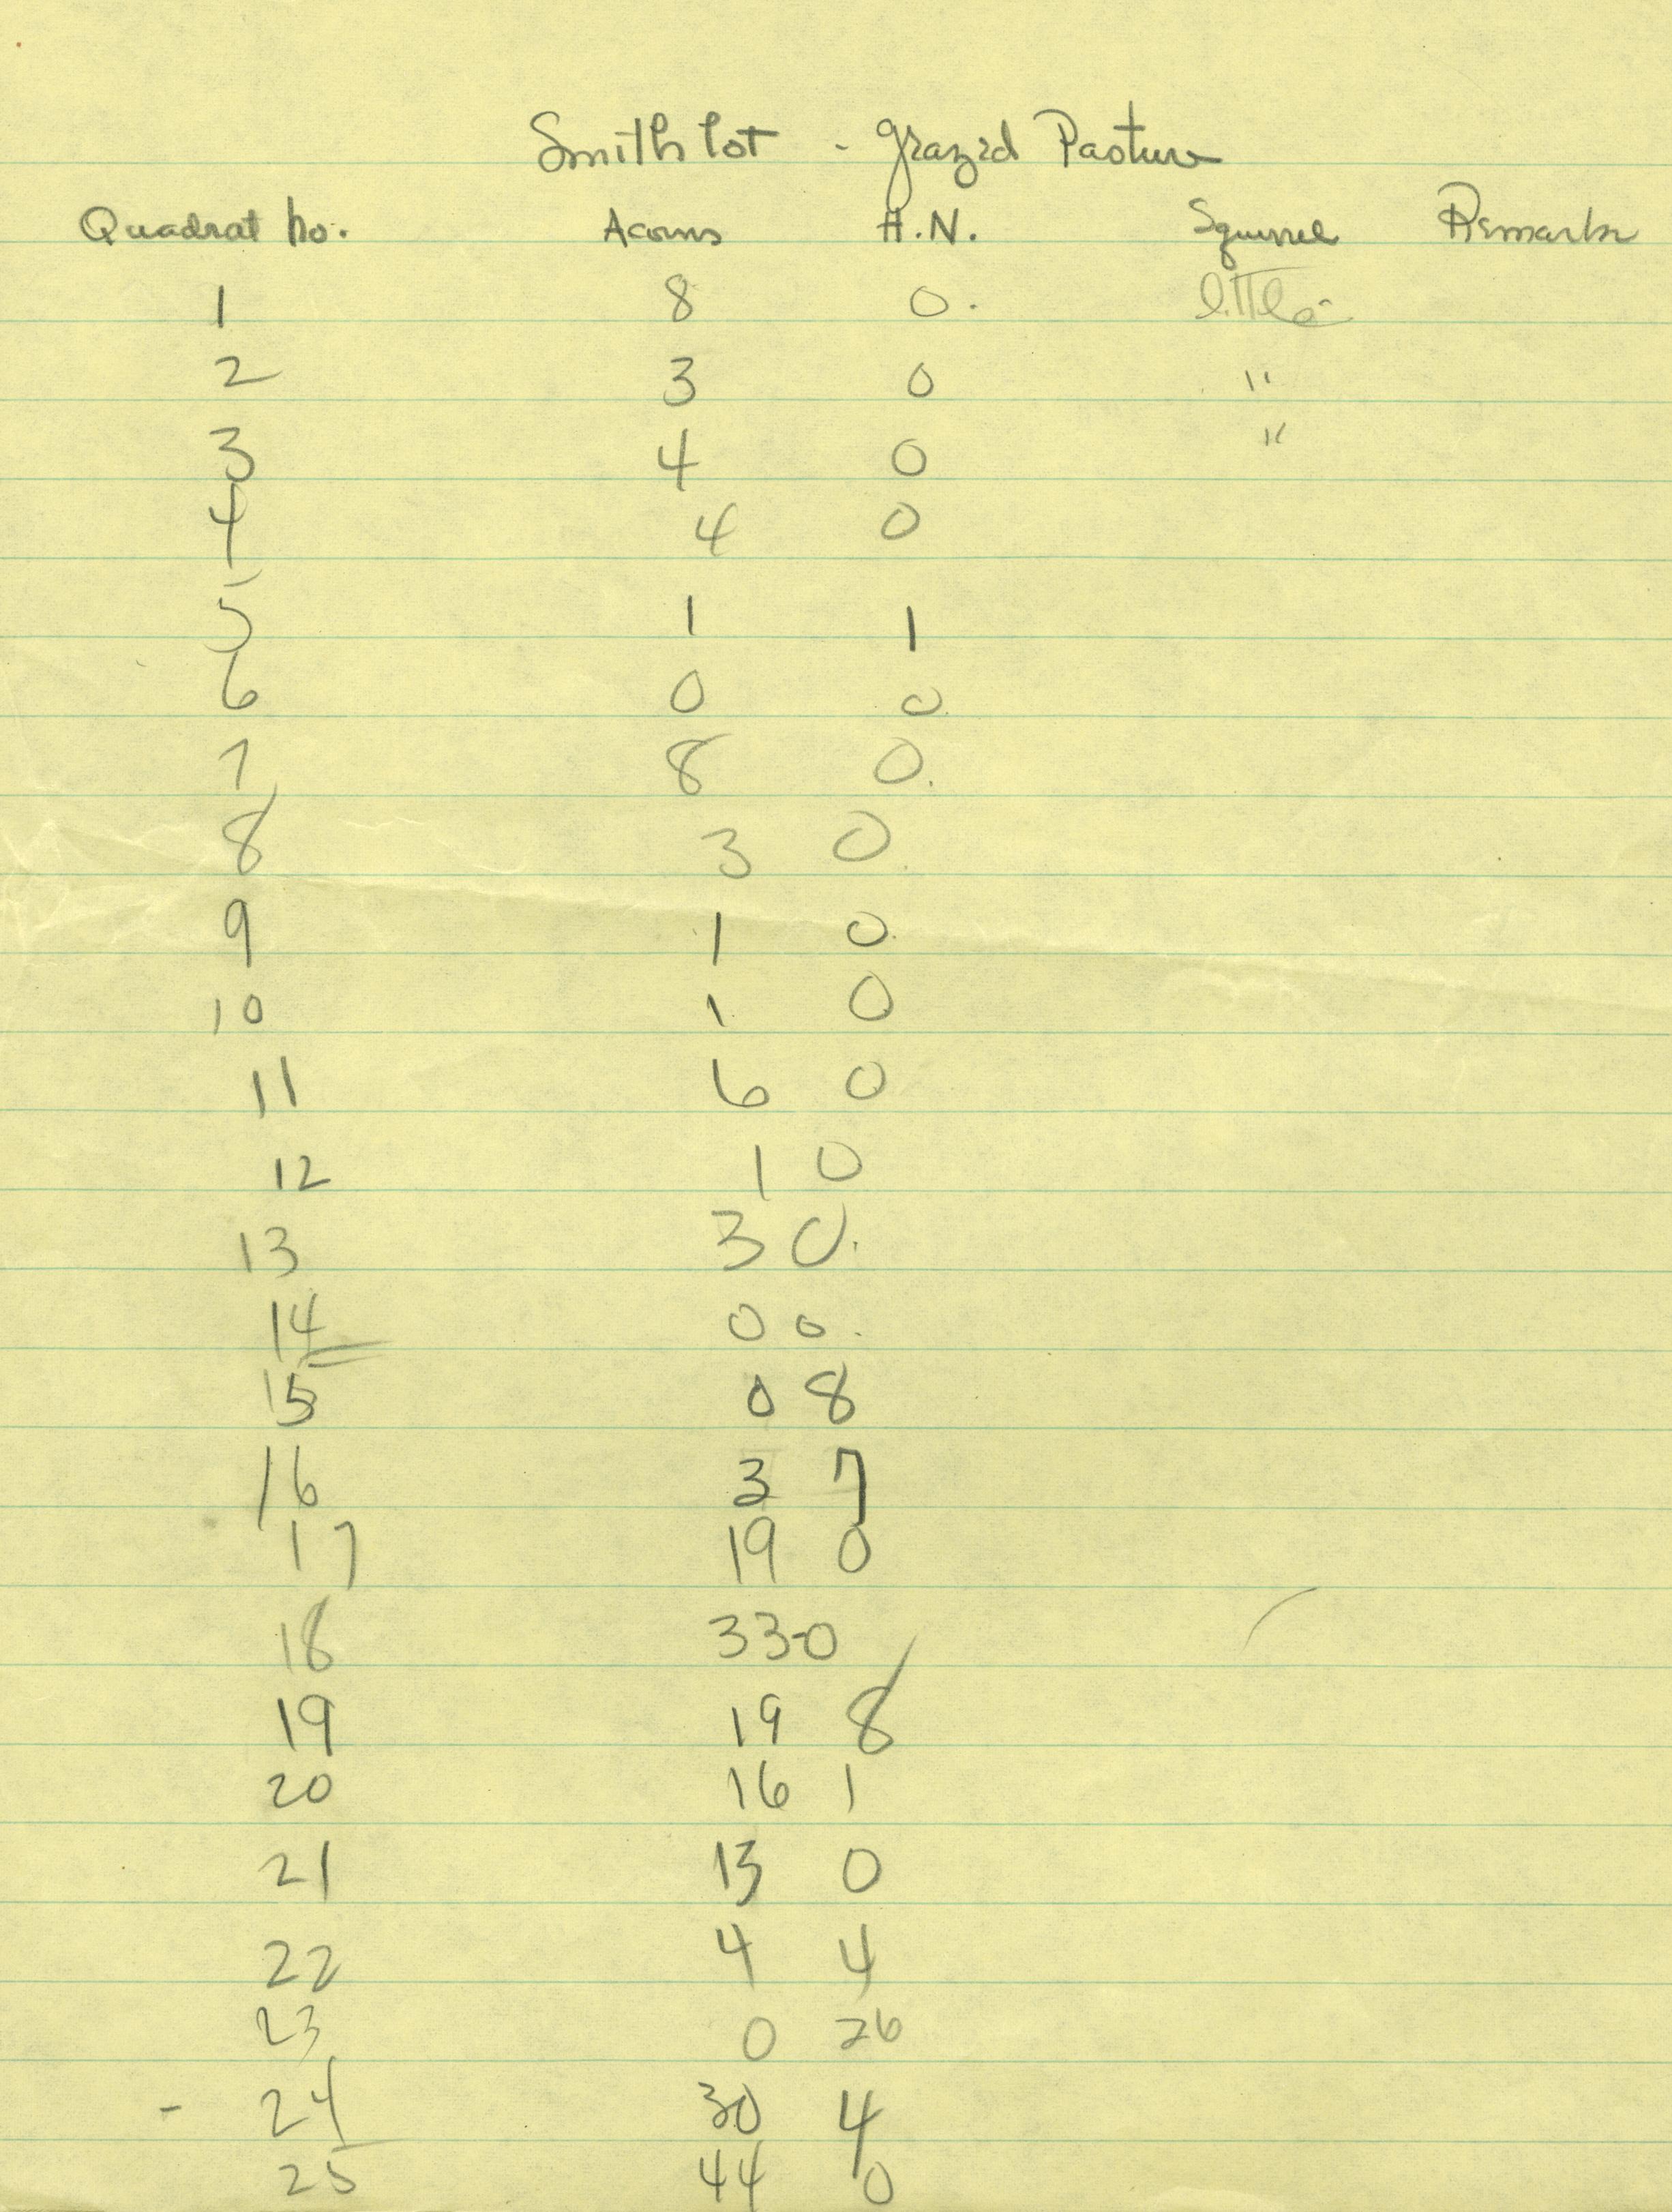 Smith lot - Grazed Pasture
Quadrat No. Acorns H.N. Squirrel Remarks
1 8 0. little
2 3 0 "
3 4 0 "
4 4 0
5 1 1
6 0 0.
7 8 0.
8 3 0.
9 1 0.
10 1 0
11 6 0
12 1 0
13 3 0.
14 0 0.
15 0 8
16 3 7
17 19 0
18 33-0
19 19 8
20 16 1
21 13 0
22 4 4
23 0 26
- 24 30 4
25 44 0